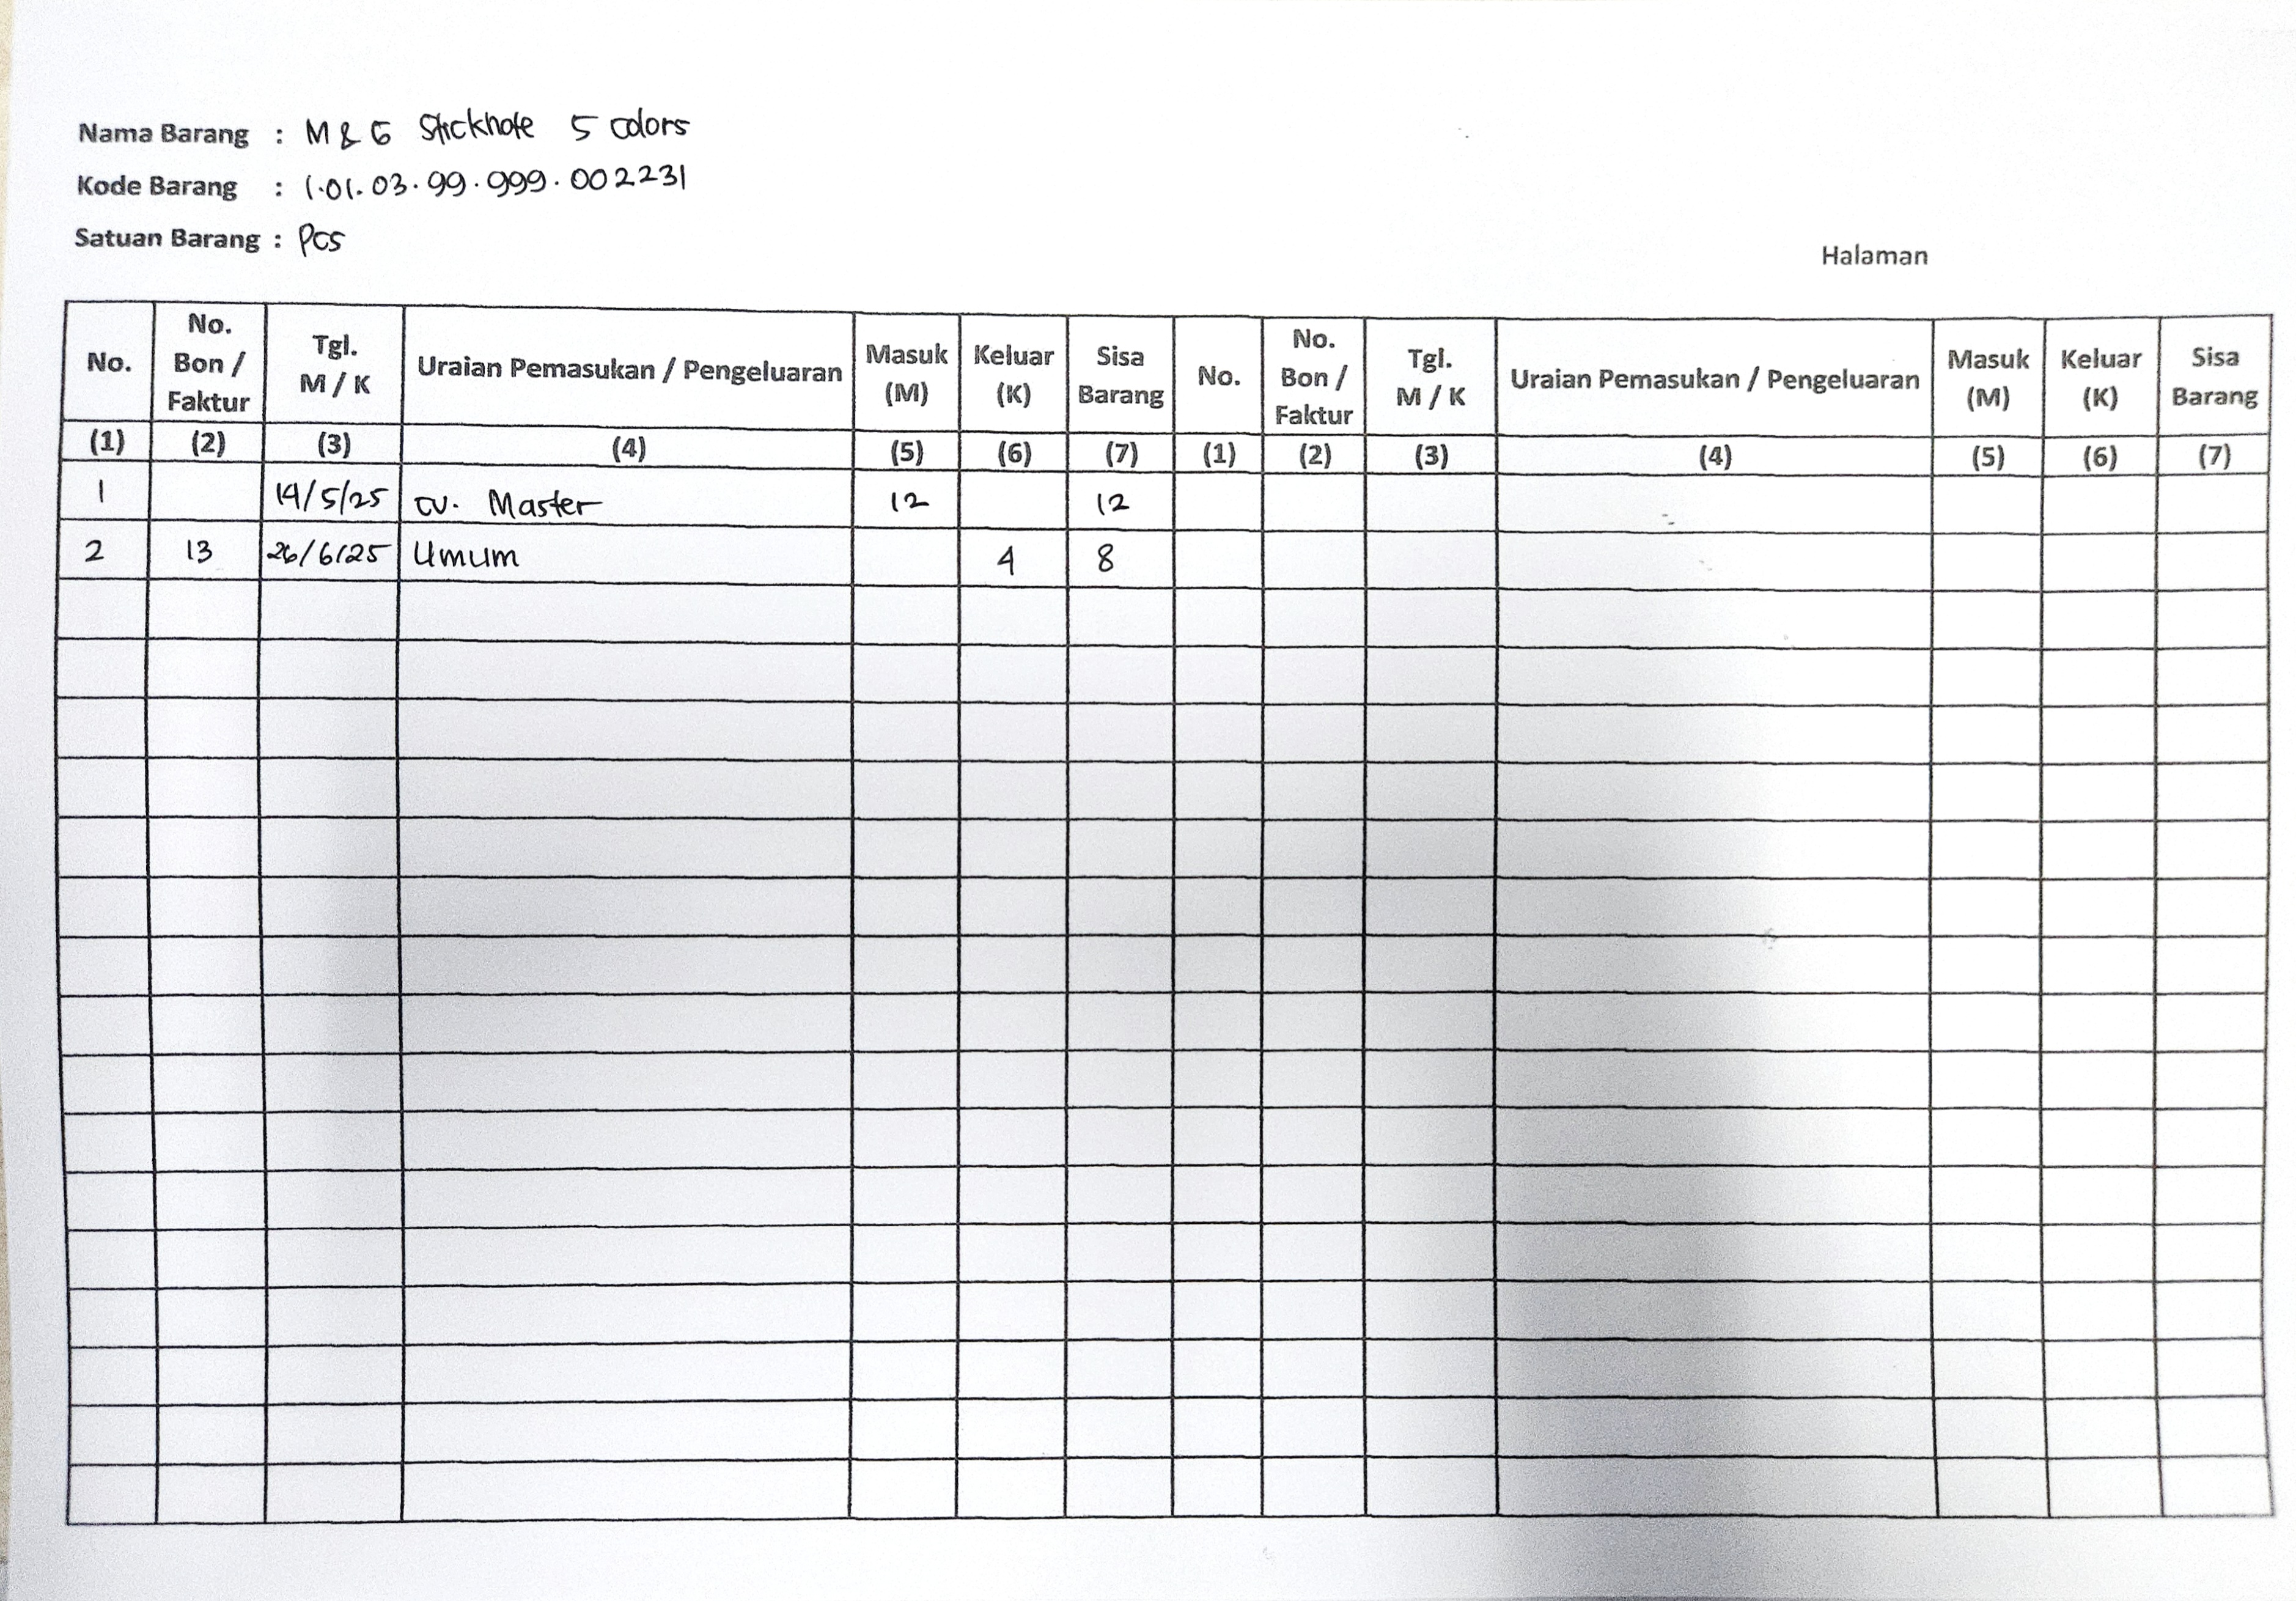 Nama Barang : M & G Sticknote 5 colors
Kode Barang : 1.01.03.99.999.002231
Satuan Barang : Pcs
Halaman
No. No. Bon / Faktur Tgl. M / K Uraian Pemasukan / Pengeluaran Masuk (M) Keluar (K) Sisa Barang No. No. Bon / Faktur Tgl. M / K Uraian Pemasukan / Pengeluaran Masuk (M) Keluar (K) Sisa Barang
(1) (2) (3) (4) (5) (6) (7) (1) (2) (3) (4) (5) (6) (7)
1 14/5/25 cv. Master 12 12
2 13 26/6/25 Umum 4 8